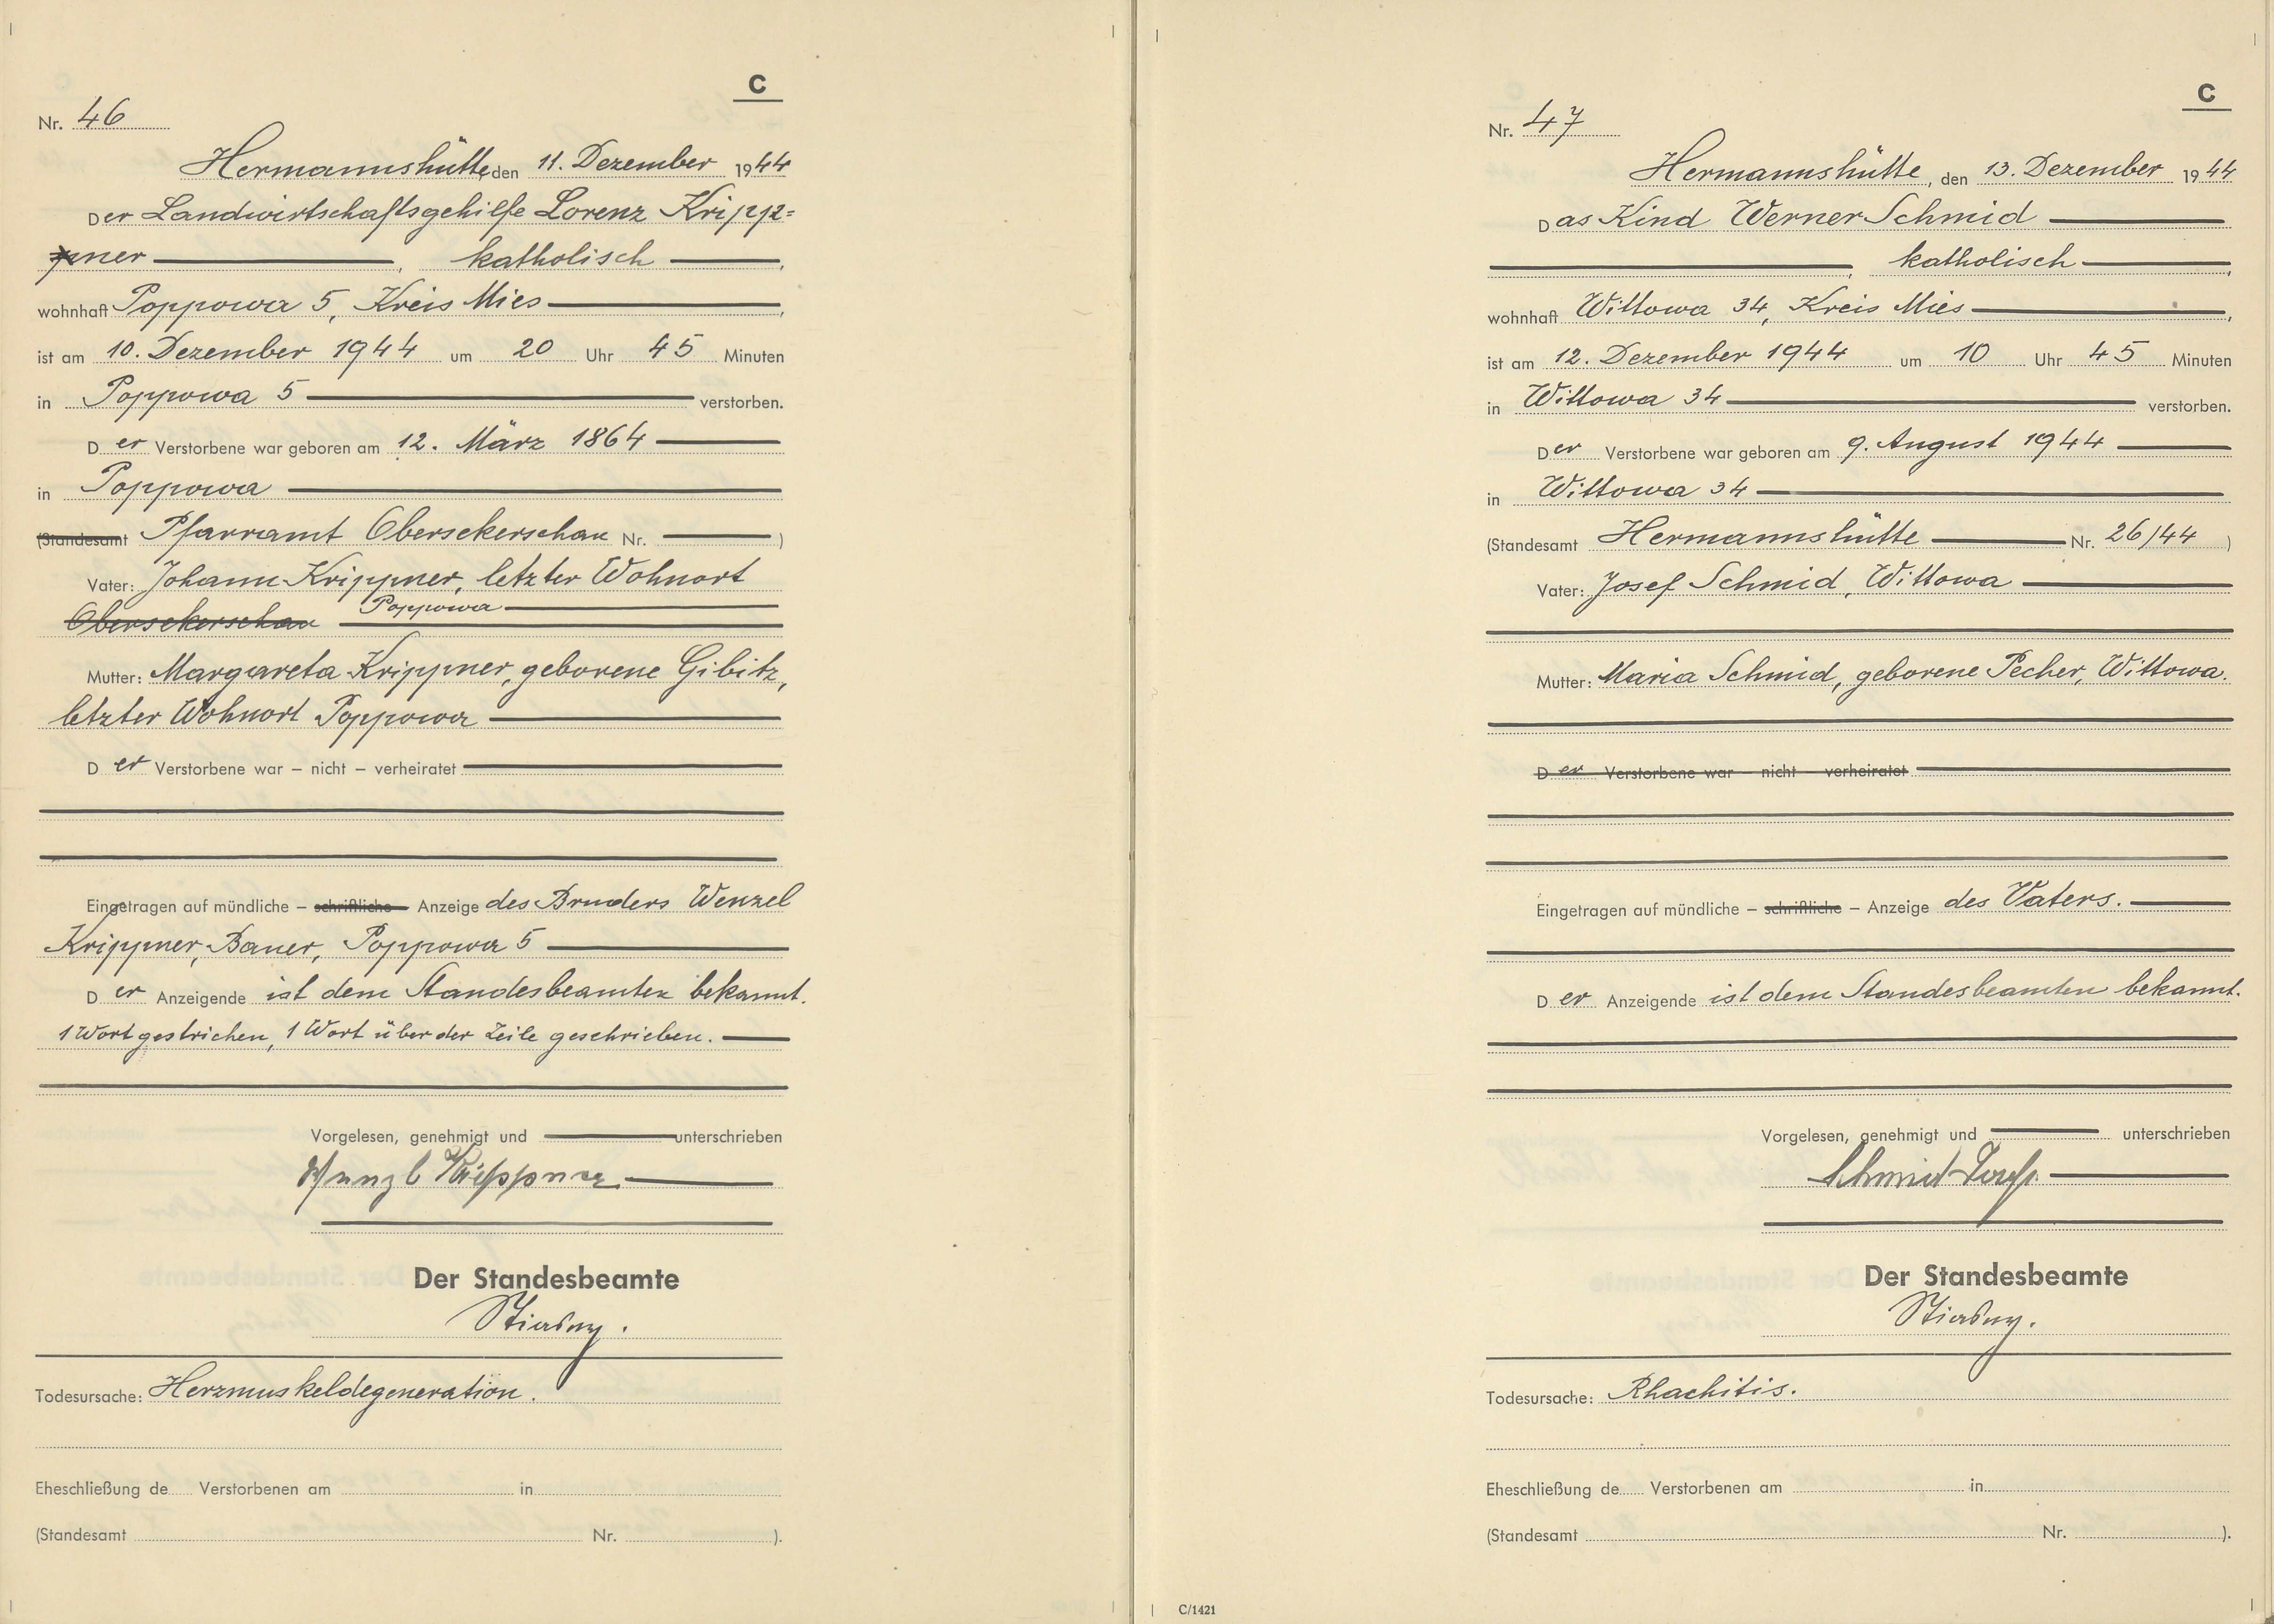 C
Nr. 46
Hermannshütte, den 11. Dezember 1944
Der Landwirtschaftsgehilfe Lorenz Kripp=
pner, katholisch,
wohnhaft Poppowa 5, Kreis Mies,
ist am 10. Dezember 1944 um 20 Uhr 45 Minuten
in Poppowa 5 verstorben.
Der Verstorbene war geboren am 12. März 1864
in Poppowa
(Standesamt Pfarramt Obersekerschan Nr. )
Vater: Johann Krippner, letzter Wohnort
Poppowa
Obersekerschan
Mutter: Margareta Krippner, geborene Gibitz,
letzter Wohnort Poppowa
Der Verstorbene war – nicht – verheiratet
Eingetragen auf mündliche – schriftliche – Anzeige des Bruders Wenzel
Krippner, Bauer, Poppowa 5
Der Anzeigende ist dem Standesbeamten bekannt.
1 Wort gestrichen, 1 Wort über der Zeile geschrieben.
Vorgelesen, genehmigt und unterschrieben
Wenzl Krippner
Der Standesbeamte
Todesursache: Herzmuskeldegeneration.
Eheschließung de Verstorbenen am in
(Standesamt Nr. ).
C
Nr. 47
Hermannshütte, den 13. Dezember 1944
Das Kind Werner Schmid
, katholisch,
wohnhaft Wittowa 34, Kreis Mies,
ist am 12. Dezember 1944 um 10 Uhr 45 Minuten
in Wittowa 34 verstorben.
Der Verstorbene war geboren am 9. August 1944
in Wittowa 34
(Standesamt Hermannshütte Nr. 26/44 )
Vater: Josef Schmid, Wittowa
Mutter: Maria Schmid, geborene Pecher, Wittowa.
Der Verstorbene war – nicht – verheiratet
Eingetragen auf mündliche – schriftliche – Anzeige des Vaters.
Der Anzeigende ist dem Standesbeamten bekannt.
Vorgelesen, genehmigt und unterschrieben
Schmid Josef.
Der Standesbeamte
Todesursache: Rhachitis.
Eheschließung de Verstorbenen am in
(Standesamt Nr. ).
C/1421